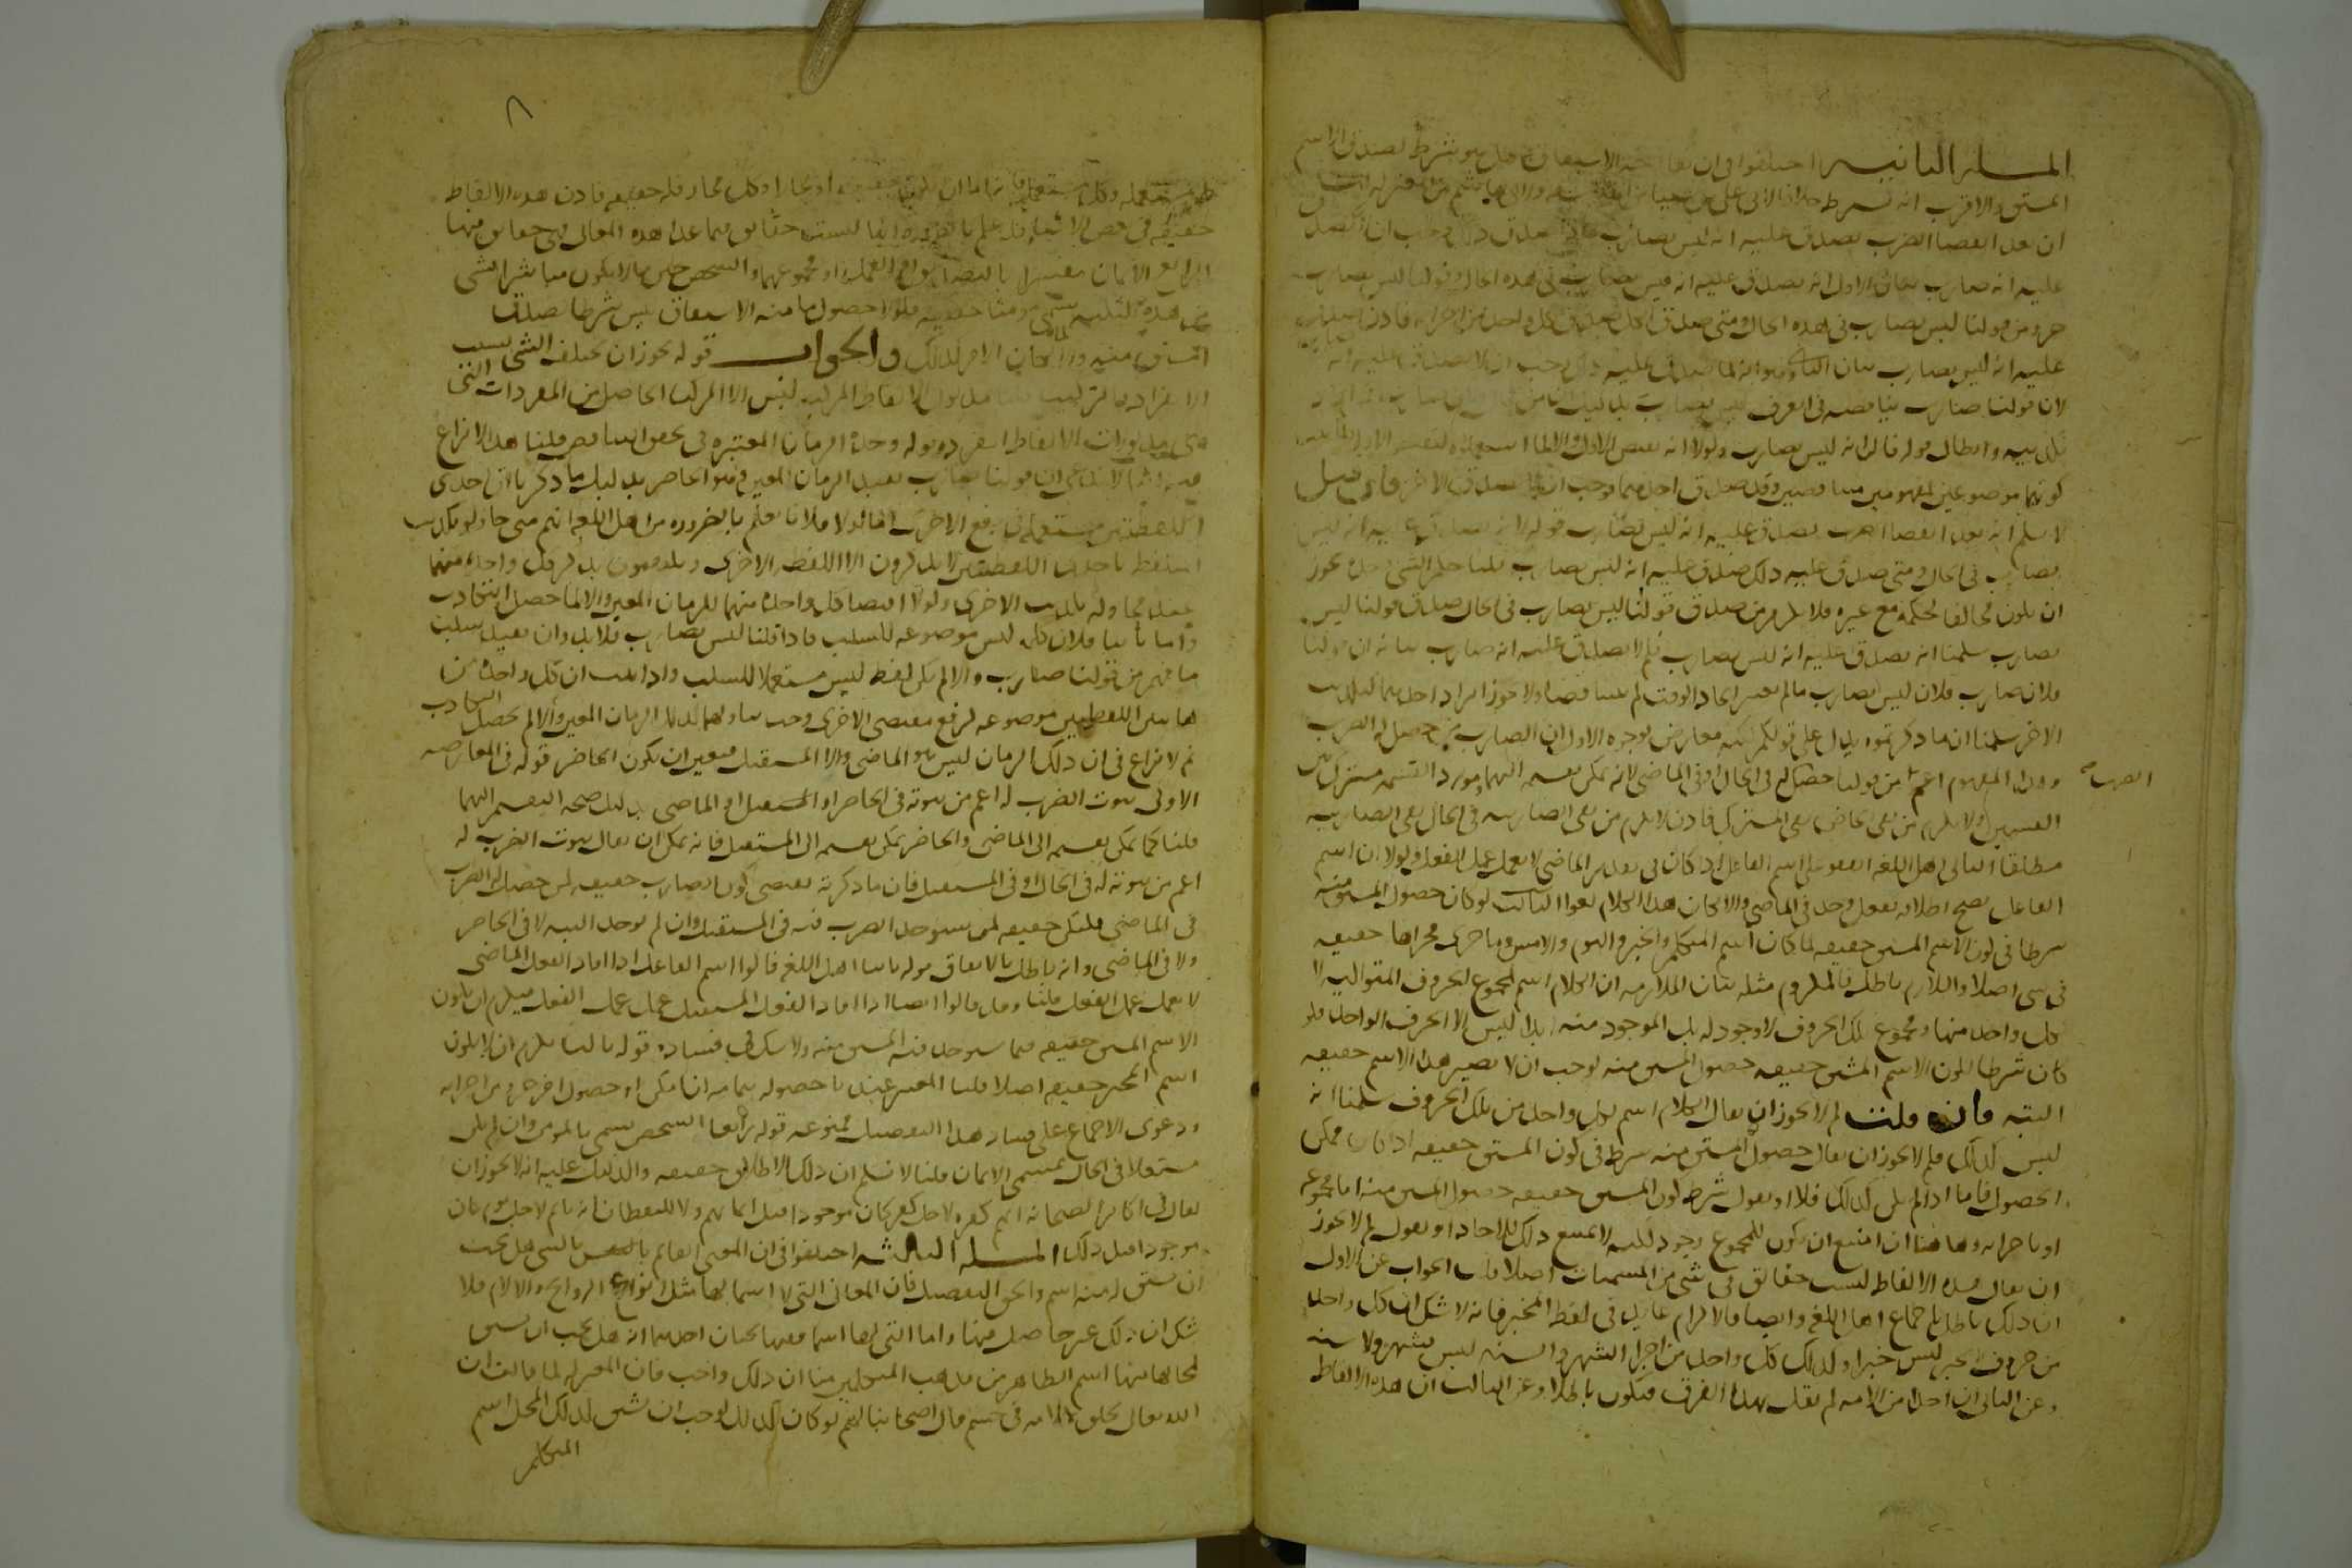 المسألة الثانية اختلفوا في ان بقا وجه الاشتقاق هل هو شرط لصدق الاسم
المشتق والاقرب انه ليس بشرط خلافا لابي علي بن سينا من الفلاسفة وابي هاشم من المعتزلة لنا
ان بعد انقضا الضرب يصدق عليه انه ليس بضارب واذا صدق ذلك وجب ان لا يصدق
عليه انه ضارب بيان الاول انه يصدق عليه انه ليس بضارب في هذه الحال وقولنا ليس بضارب
جزو من قولنا ليس بضارب في هذه الحال ومتى صدق الكل صدق كل واحد من اجزائه فاذن صدق
عليه انه ليس بضارب بيان الثاني هو انه لما صدق عليه ذلك وجب ان لا يصدق عليه انه ضارب
لان قولنا ضارب يناقضه في العرف ليس بضارب بدليل ان من قال فلان ضارب فمن اراد
تكذيبه وابطال قوله قال انه ليس بضارب ولولا انه نقيض الاول والا لما استعملوه لنقض الاول لما ثبت
كونهما موضوعين لمفهومين متناقضين وقد صدق احدهما وجب ان لا يصدق الاخر فان قيل
لا نسلم ان بعد انقضا الضرب يصدق عليه انه ليس بضارب قوله لانه يصدق عليه انه ليس
بضارب في الحال ومتى صدق عليه ذلك صدق عليه انه ليس بضارب قلنا حكم الشي وحده يجوز
ان يكون مخالفا لحكمه مع غيره فلا يلزم من صدق قولنا ليس بضارب في الحال صدق قولنا ليس
بضارب سلمنا انه يصدق عليه انه ليس بضارب فلم لا يصدق عليه انه ضارب بيانه ان قولنا
فلان ضارب فلان ليس بضارب ما لم يعتبر اتحاد الوقت لم يتناقضا ولا جوز ايراد احدهما لتكذيب
الاخر سلمنا ان ما ذكرتموه يدل على قولكم لكنه معارض بوجوه الاول ان الضارب من حصل له الضرب
وهذا المفهوم اعم من قولنا حصل له الضرب في الحال او في الماضي لانه يمكن تقسيمه اليهما ومورد القسمة مشترك بين
القسمين ولا يلزم من نفي الخاص نفي المشترك فاذن لا يلزم من نفي الضاربية في الحال نفي الضاربية
مطلقا الثاني اهل اللغة اتفقوا على ان اسم الفاعل اذا كان في تقدير الماضي لا يعمل عمل الفعل ولولا ان اسم
الفاعل يصح اطلاقه لفعل وجد في الماضي والا لكان هذا الكلام لغوا الثالث لو كان حصول المشتق منه
شرطا في كون الاسم المشتق حقيقة لما كان اسم المتكلم والمخبر واليوم والامس وما جرى مجراها حقيقة
في شي اصلا واللازم باطل فالملزوم مثله بيان الملازمة ان الكلام اسم لمجموع الحروف المتوالية لا
كل واحد منها ومجموع تلك الحروف لا وجود له بل الموجود منه ابدا ليس الا الحرف الواحد فلو
كان شرطا لكون الاسم المشتق حقيقة حصول المشتق منه لوجب ان لا يصير هذا الاسم حقيقة
البتة فان قلت لم لا يجوز ان يقال الكلام اسم لكل واحد من تلك الحروف سلمنا انه
ليس كذلك فلم لا يجوز ان يقال حصول المشتق منه شرط في كون المشتق حقيقة اذا كان ممكن
الحصول فاما اذا لم يكن كذلك فلا او نقول شرط كون المشتق حقيقة حصول المشتق منه اما بمجموعه
او باجزائه وهاهنا ان امتنع ان يكون للمجموع وجود لكنه لا يمتنع ذلك للاحاد او نقول لم لا يجوز
ان يقال هذه الالفاظ ليست حقائق في شي من المسميات اصلا قلت الجواب عن الاول
ان ذلك باطل باجماع اهل اللغة وايضا فالالزام عايد في لفظ المخبر فانه لا شك ان كل واحد
من حروف الخبر ليس خبرا وكذلك كل واحد من اجزا الشهر والسنة ليس بشهر ولا سنة
وعن الثاني ان احدا من الامة لم يقل بهذا الفرق فيكون باطلا وعن الثالث ان هذه الالفاظ
مستعملة وكل مستعمل فاما ان يكون حقيقة او مجازا وكل مجاز فله حقيقة فاذن هذه الالفاظ
حقيقة في بعض الاشيا وقد علم بالضرورة انها ليست حقائق فيما عدا هذه المعاني فهي حقائق فيها
الرابع الايمان مفسر اما بالتصديق او العمل او مجموعهما والشخص حين ما لا يكون مباشر الشي
من هذه الثلثة يسمى مومنا حقيقة فلولا حصول ما منه الاشتقاق ليس شرطا لصدق
المشتق منه والا لما كان الامر كذلك والجواب قوله يجوز ان يختلف الشي بسبب
الانفراد والتركيب قلنا مدلول الالفاظ المركبة ليس الا المركب الحاصل من المفردات التي
هي مدلولات الالفاظ المفردة قوله وحدة الزمان المعتبرة في تحقق التناقض قلنا هذا لا نزاع
فيه انا لا ندعي ان قولنا ضارب يفيد الزمان المعين وهو الحاضر بدليل ما ذكرنا ان احدى
اللفظتين مستعملة في رفع الاخرى اما اولا فلانا نعلم بالضرورة من اهل اللغة انهم متى حاولوا تكذيب
المتلفظ باحدى اللفظتين لا يذكرون الا اللفظة الاخرى ويكتفون بذكر كل واحدة منهما
عند محاولة تكذيب الاخرى ولولا اقتضا كل واحدة منهما للزمان المعين والا لما حصل التكاذب
واما ثانيا فلان كلمة ليس موضوعة للسلب فاذا قلنا ليس بضارب فلا بد وان يفيد سلب
ما فهم من قولنا ضارب والا لم يكن لفظ ليس مستعملا للسلب واذا ثبت ان كل واحدة من
هاتين اللفظتين موضوعة لرفع مقتضى الاخرى وجب تناولهما لذلك الزمان المعين والا لم يحصل التكاذب
ثم لا نزاع في ان ذلك الزمان ليس هو الماضي ولا المستقبل فتعين ان يكون الحاضر قوله في المعارضة
الاولى ثبوت الضرب له اعم من ثبوته في الحاضر او المستقبل او الماضي بدليل صحة التقسيم اليهما
قلنا كما يمكن تقسيمه الى الماضي والحاضر يمكن تقسيمه الى المستقبل فانه يمكن ان يقال ثبوت الضرب له
اعم من ثبوته له في الحال او في المستقبل فان ما ذكرته يقتضي كون الضارب حقيقة لمن حصل له الضرب
في الماضي فليكن حقيقة لمن سيوجد الضرب منه في المستقبل وان لم يوجد البتة لا في الحاضر
ولا في الماضي وانه باطل بالاتفاق قوله ثانيا اهل اللغة قالوا اسم الفاعل اذا افاد الفعل الماضي
لا يعمل عمل الفعل قلنا وقد قالوا ايضا اذا افاد الفعل المستقبل عمل عمل الفعل فيلزم ان يكون
الاسم المشتق حقيقة فيما سيوجد فيه المشتق منه ولا شك في فساده قوله ثالثا يلزم ان لا يكون
اسم المخبر حقيقة اصلا قلنا المعتبر عندنا حصوله بتمامه ان امكن او حصول اخر جزو من اجزايه
ودعوى الاجماع على فساد هذا التفصيل ممنوعة قوله رابعا الشخص يسمى بالمومن وان لم يكن
مشتغلا في الحال بمسمى الايمان قلنا لا نسلم ان ذلك الاطلاق حقيقة والدليل عليه انه لا يجوز ان
يقال في اكابر الصحابة انهم كفرة لاجل كفر كان موجودا قبل ايمانهم ولا لليقظان انه نايم لاجل نوم كان
موجودا قبل ذلك المسألة الثالثة اختلفوا في ان المعنى القائم بالشي هل يجب
ان يشتق له منه اسم والحق التفصيل فان المعاني التي لا اسما لها مثل انواع الروايح والالام فلا
شك ان ذلك غير حاصل فيها واما التي لها اسما ففيها بحثان احدهما انه هل يجب ان يشتق
لمحالها منها اسم الظاهر من مذهب المتكلمين منا ان ذلك واجب فان المعتزلة لما قالت ان
الله تعالى يخلق كلامه في جسم قال اصحابنا لهم لو كان كذلك لوجب ان يشتق لذلك المحل اسم
المتكلم